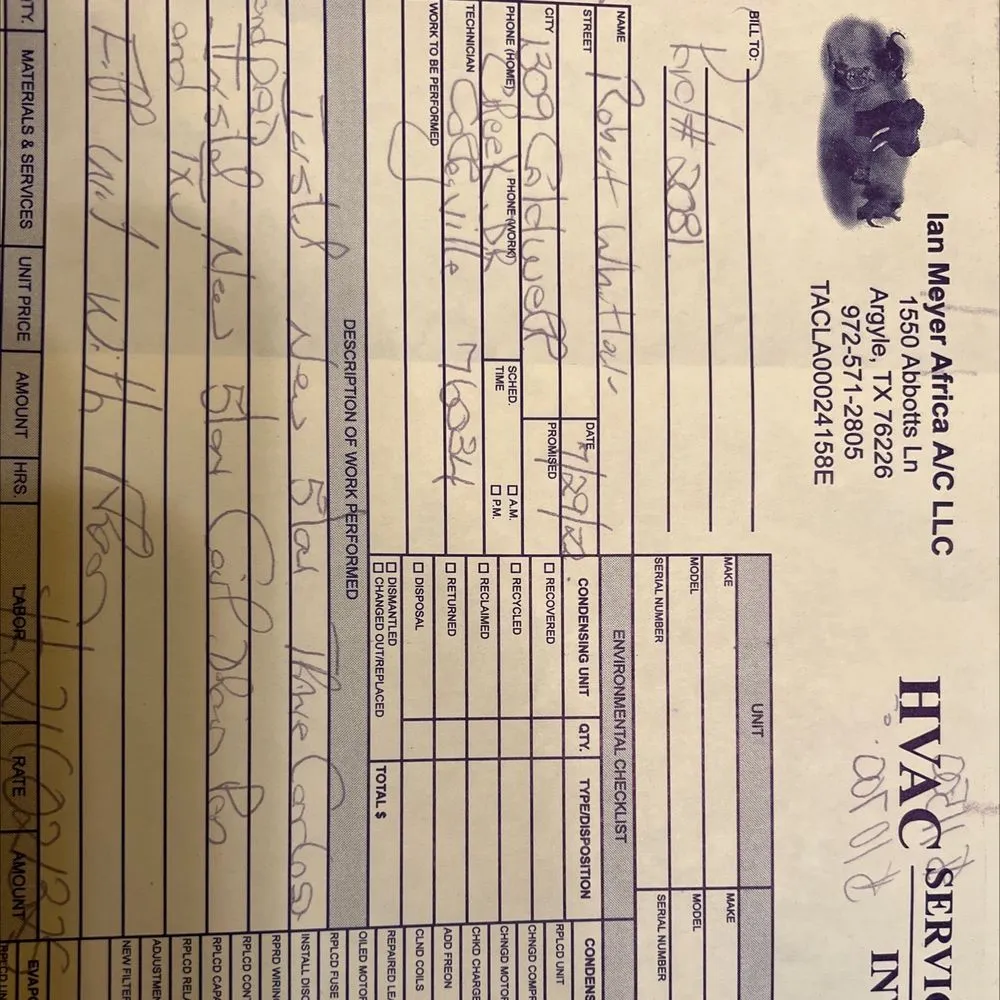 Ian Meyer Africa A/C LLC
1550 Abbotts Ln
Argyle, TX 76226
972-571-2805
TACLA00024158E
HVAC SERVI
IN
BILL TO:
# 2081
NAME
Robert
DATE
7/29/22
STREET
1309 Coldwell
PROMISED
CITY
Creek Dr
PHONE (HOME)
PHONE (WORK)
SCHED. TIME
A.M.
P.M.
TECHNICIAN
Colleyville 76034
WORK TO BE PERFORMED
UNIT
MAKE
MAKE
MODEL
MODEL
SERIAL NUMBER
SERIAL NUMBER
ENVIRONMENTAL CHECKLIST
CONDENSING UNIT
QTY.
TYPE/DISPOSITION
RECOVERED
RECYCLED
RECLAIMED
RETURNED
DISPOSAL
DISMANTLED
CHANGED OUT/REPLACED
TOTAL $
CONDENS
RPLCD UNIT
CHNGD COMPR
CHNGD MOTOR
CHKD CHARGE
ADD FREON
CLND COILS
REPAIRED LEA
OILED MOTOR
RPLCD FUSE
INSTALL DISC
RPRD WIRING
RPLCD CONT
RPLCD CAPA
RPLCD RELA
ADJUSTMEN
NEW FILTER
EVAPO
RPLCD UN
DESCRIPTION OF WORK PERFORMED
Install New 5ton
Install New 5ton Coil Drain Pan
and TXV
Fill unit with Freon
TY.
MATERIALS & SERVICES
UNIT PRICE
AMOUNT
HRS.
LABOR
RATE
AMOUNT